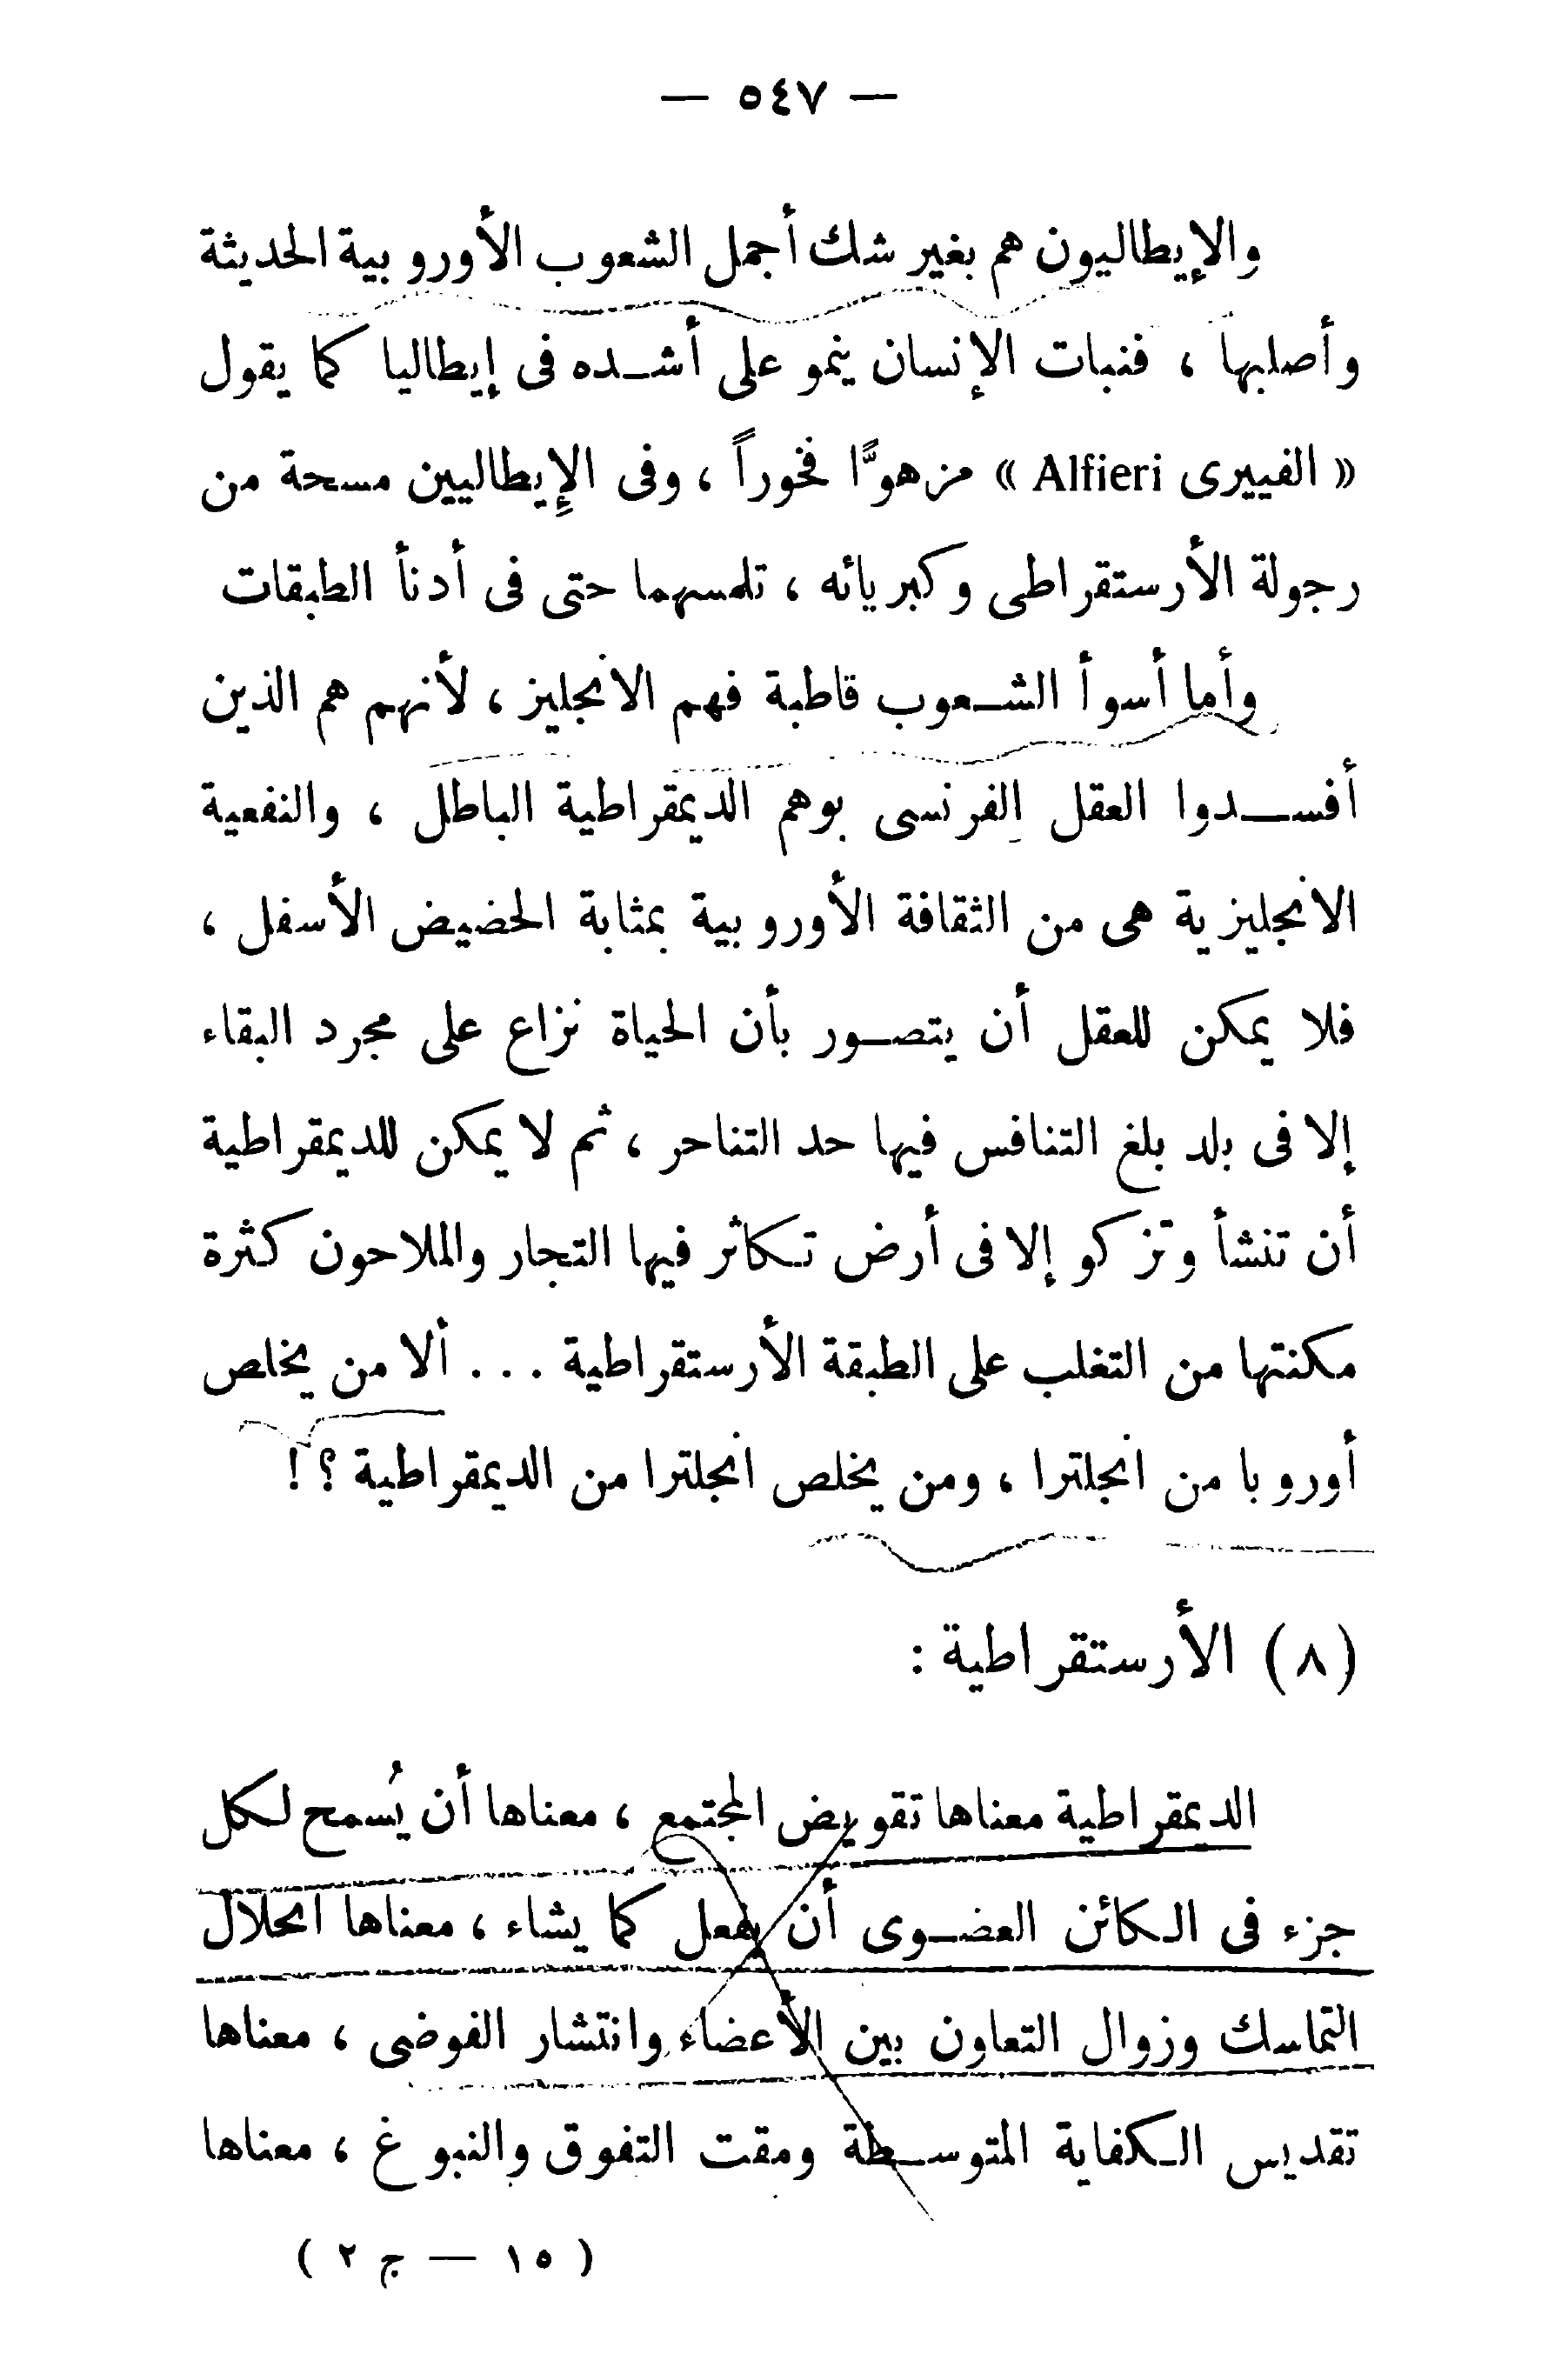 — ٥٤٧ —
والإيطاليون هم بغير شك أجمل الشعوب الأوروبية الحديثة
وأصلبها ، فنبات الإنسان ينمو على أشـده فى إيطاليا كما يقول
« الفييرى Alfieri » مزهوًّا فخوراً ، وفى الإيطاليين مسحة من
رجولة الأرستقراطى وكبريائه ، تلمسهما حتى فى أدنأ الطبقات
وأما أسوأ الشـعوب قاطبة فهم الانجليز ، لأنهم هم الذين
أفسـدوا العقل الفرنسى بوهم الديمقراطية الباطل ، والنفعية
الانجليزية هى من الثقافة الأوروبية بمثابة الحضيض الأسفل ،
فلا يمكن للعقل أن يتصـور بأن الحياة نزاع على مجرد البقاء
إلا فى بلد بلغ التنافس فيها حد التناحر ، ثم لا يمكن للديمقراطية
أن تنشأ وتزكو إلا فى أرض تـكاثر فيها التجار والملاحون كثرة
مكنتها من التغلب على الطبقة الأرستقراطية . . . ألا من يخلص
أوروبا من انجلترا ، ومن يخلص انجلترا من الديمقراطية ؟ !
(٨) الأرستقراطية :
الديمقراطية معناها تقويض المجتمع ، معناها أن يُسمح لـكل
جزء فى الـكائن العضـوى أن يفعل كما يشاء ، معناها انحلال
التماسك وزوال التعاون بين الأعضاء وانتشار الفوضى ، معناها
تقديس الـكفاية المتوسـطة ومقت التفوق والنبوغ ، معناها
( ١٥ — ج ٢ )